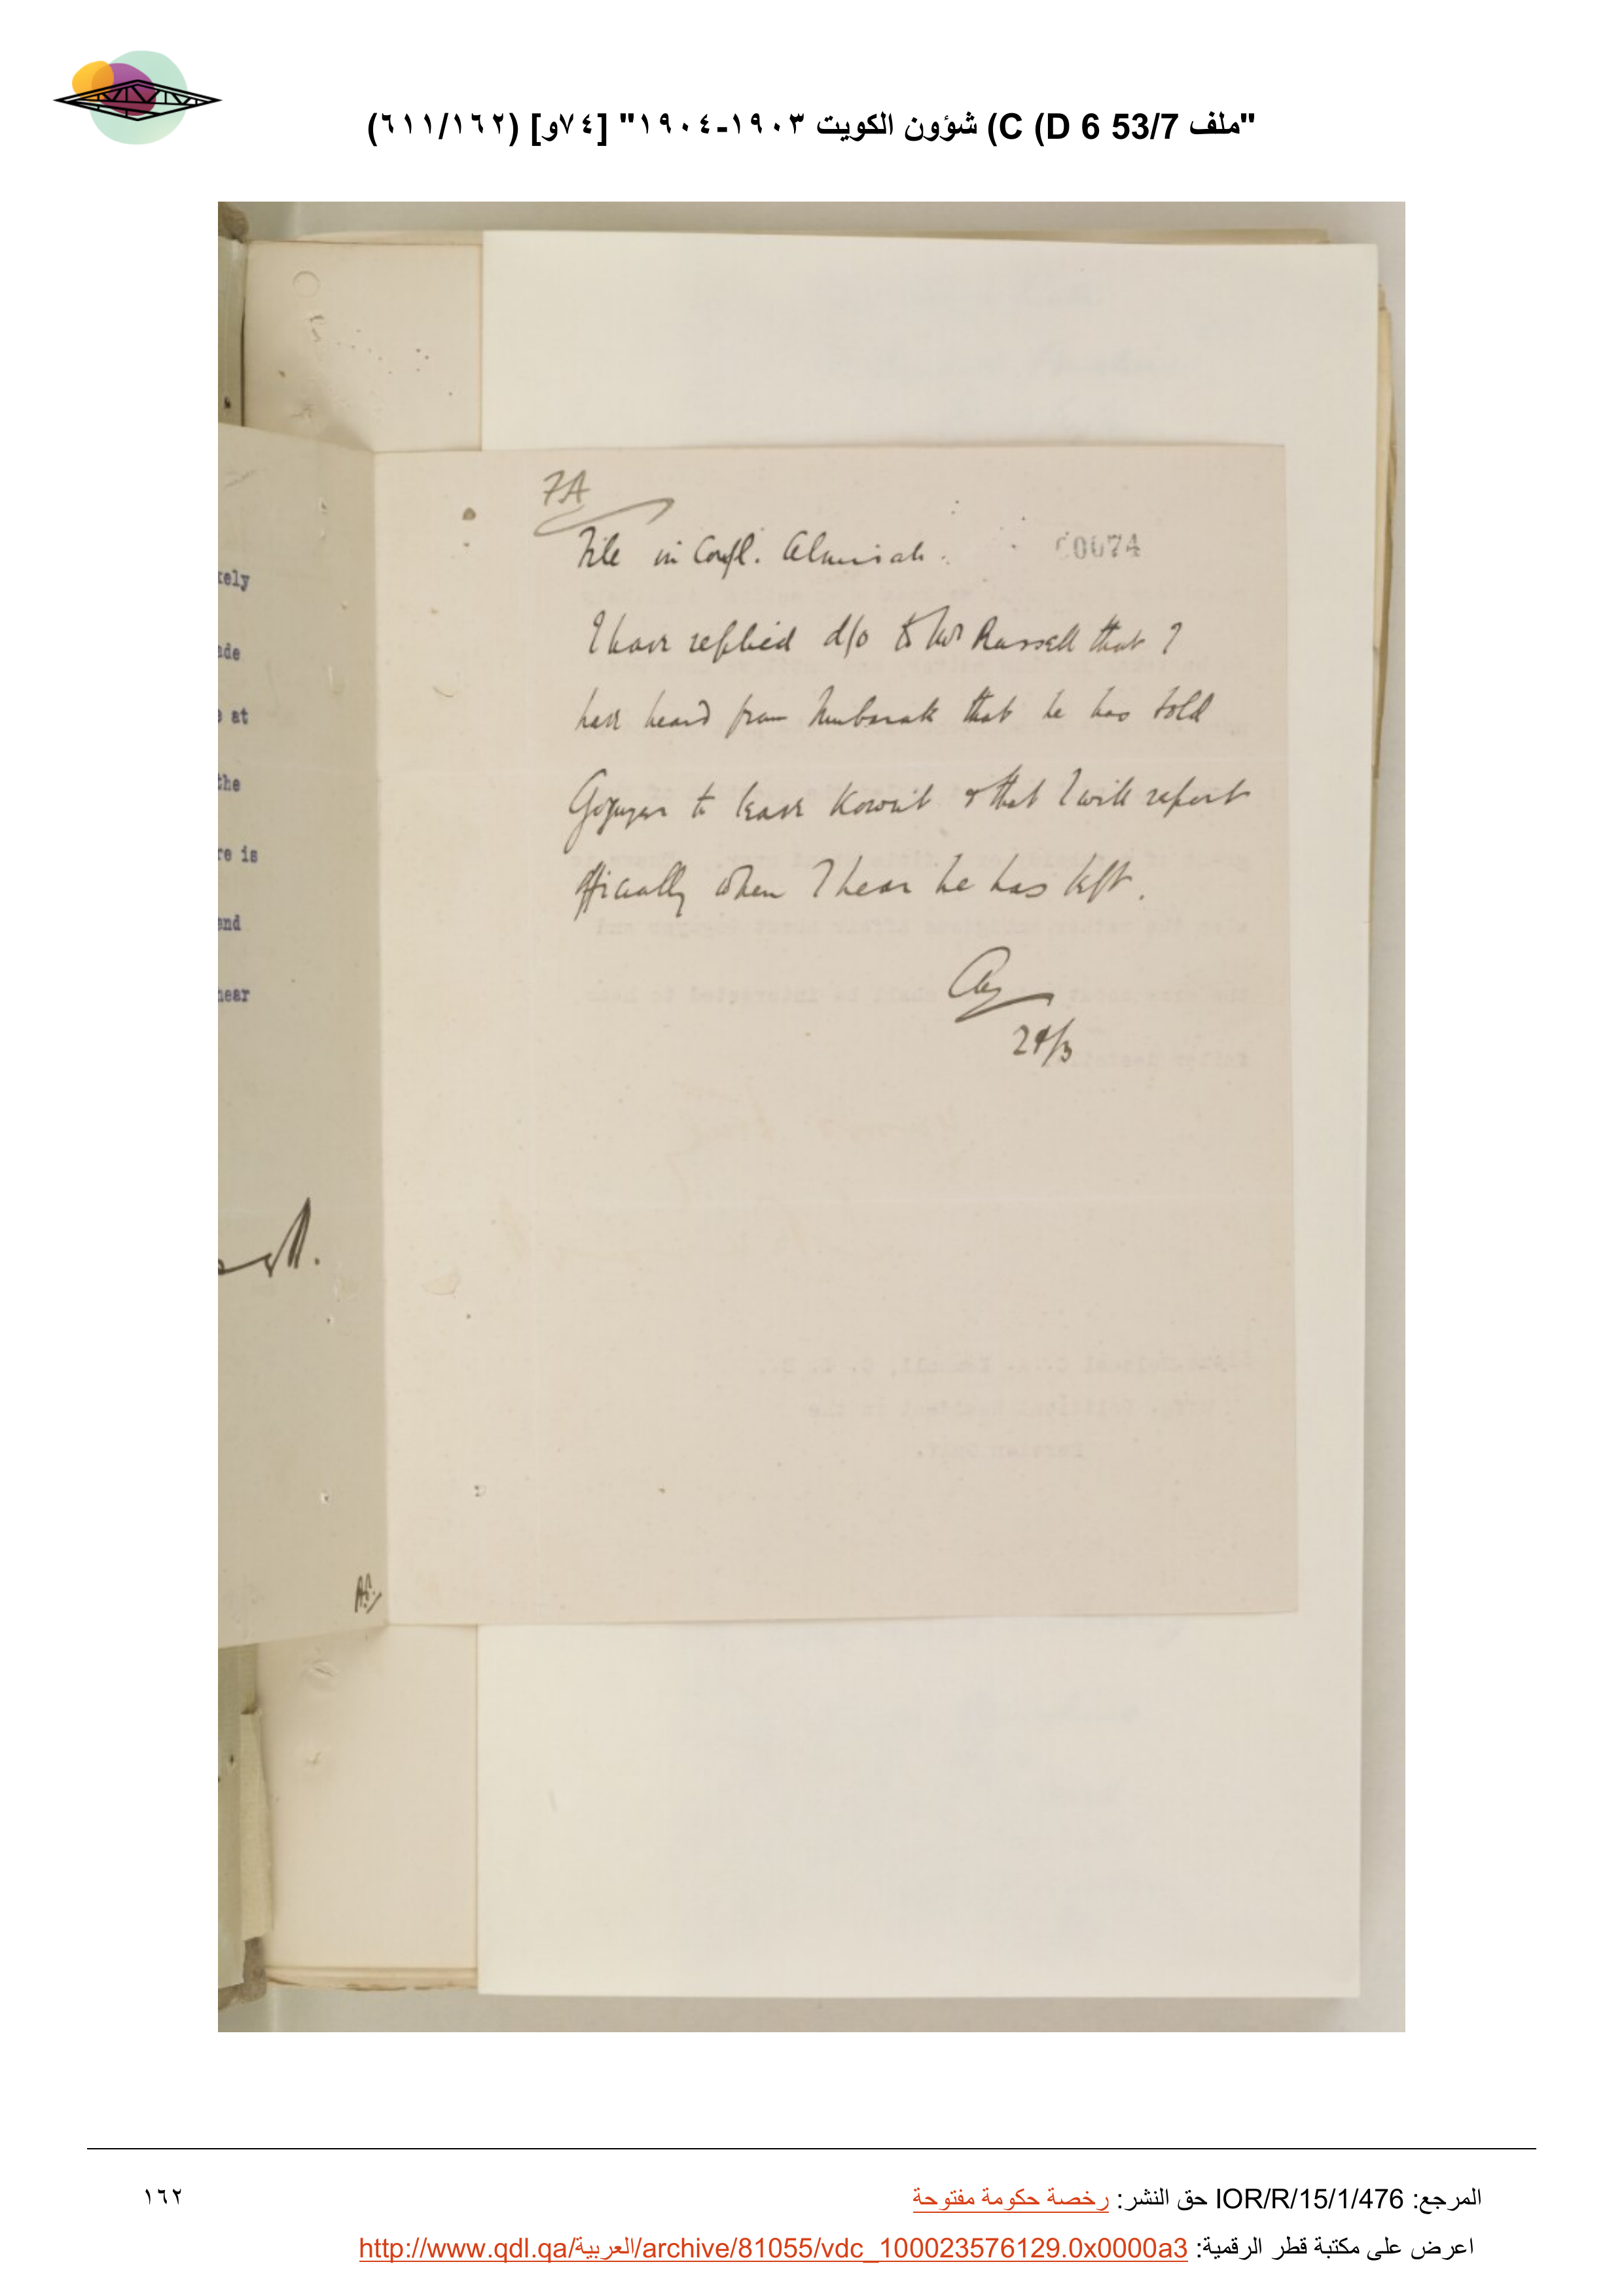 "ملف 53/7 D 6) C) شؤون الكويت ١٩٠٣-١٩٠٤" [٧٤و] (٦١١/١٦٢)
7A
File in Confl. Almirah.
00074
I have replied d/o to Mr Russell that I
have heard from Mubarak that he has told
Goguyer to leave Koweit & that I will report
officially when I hear he has left.
24/3
ade
at
the
re is
end
hear
المرجع: IOR/R/15/1/476 حق النشر: رخصة حكومة مفتوحة
١٦٢
اعرض على مكتبة قطر الرقمية: http://www.qdl.qa/العربية/archive/81055/vdc_100023576129.0x0000a3